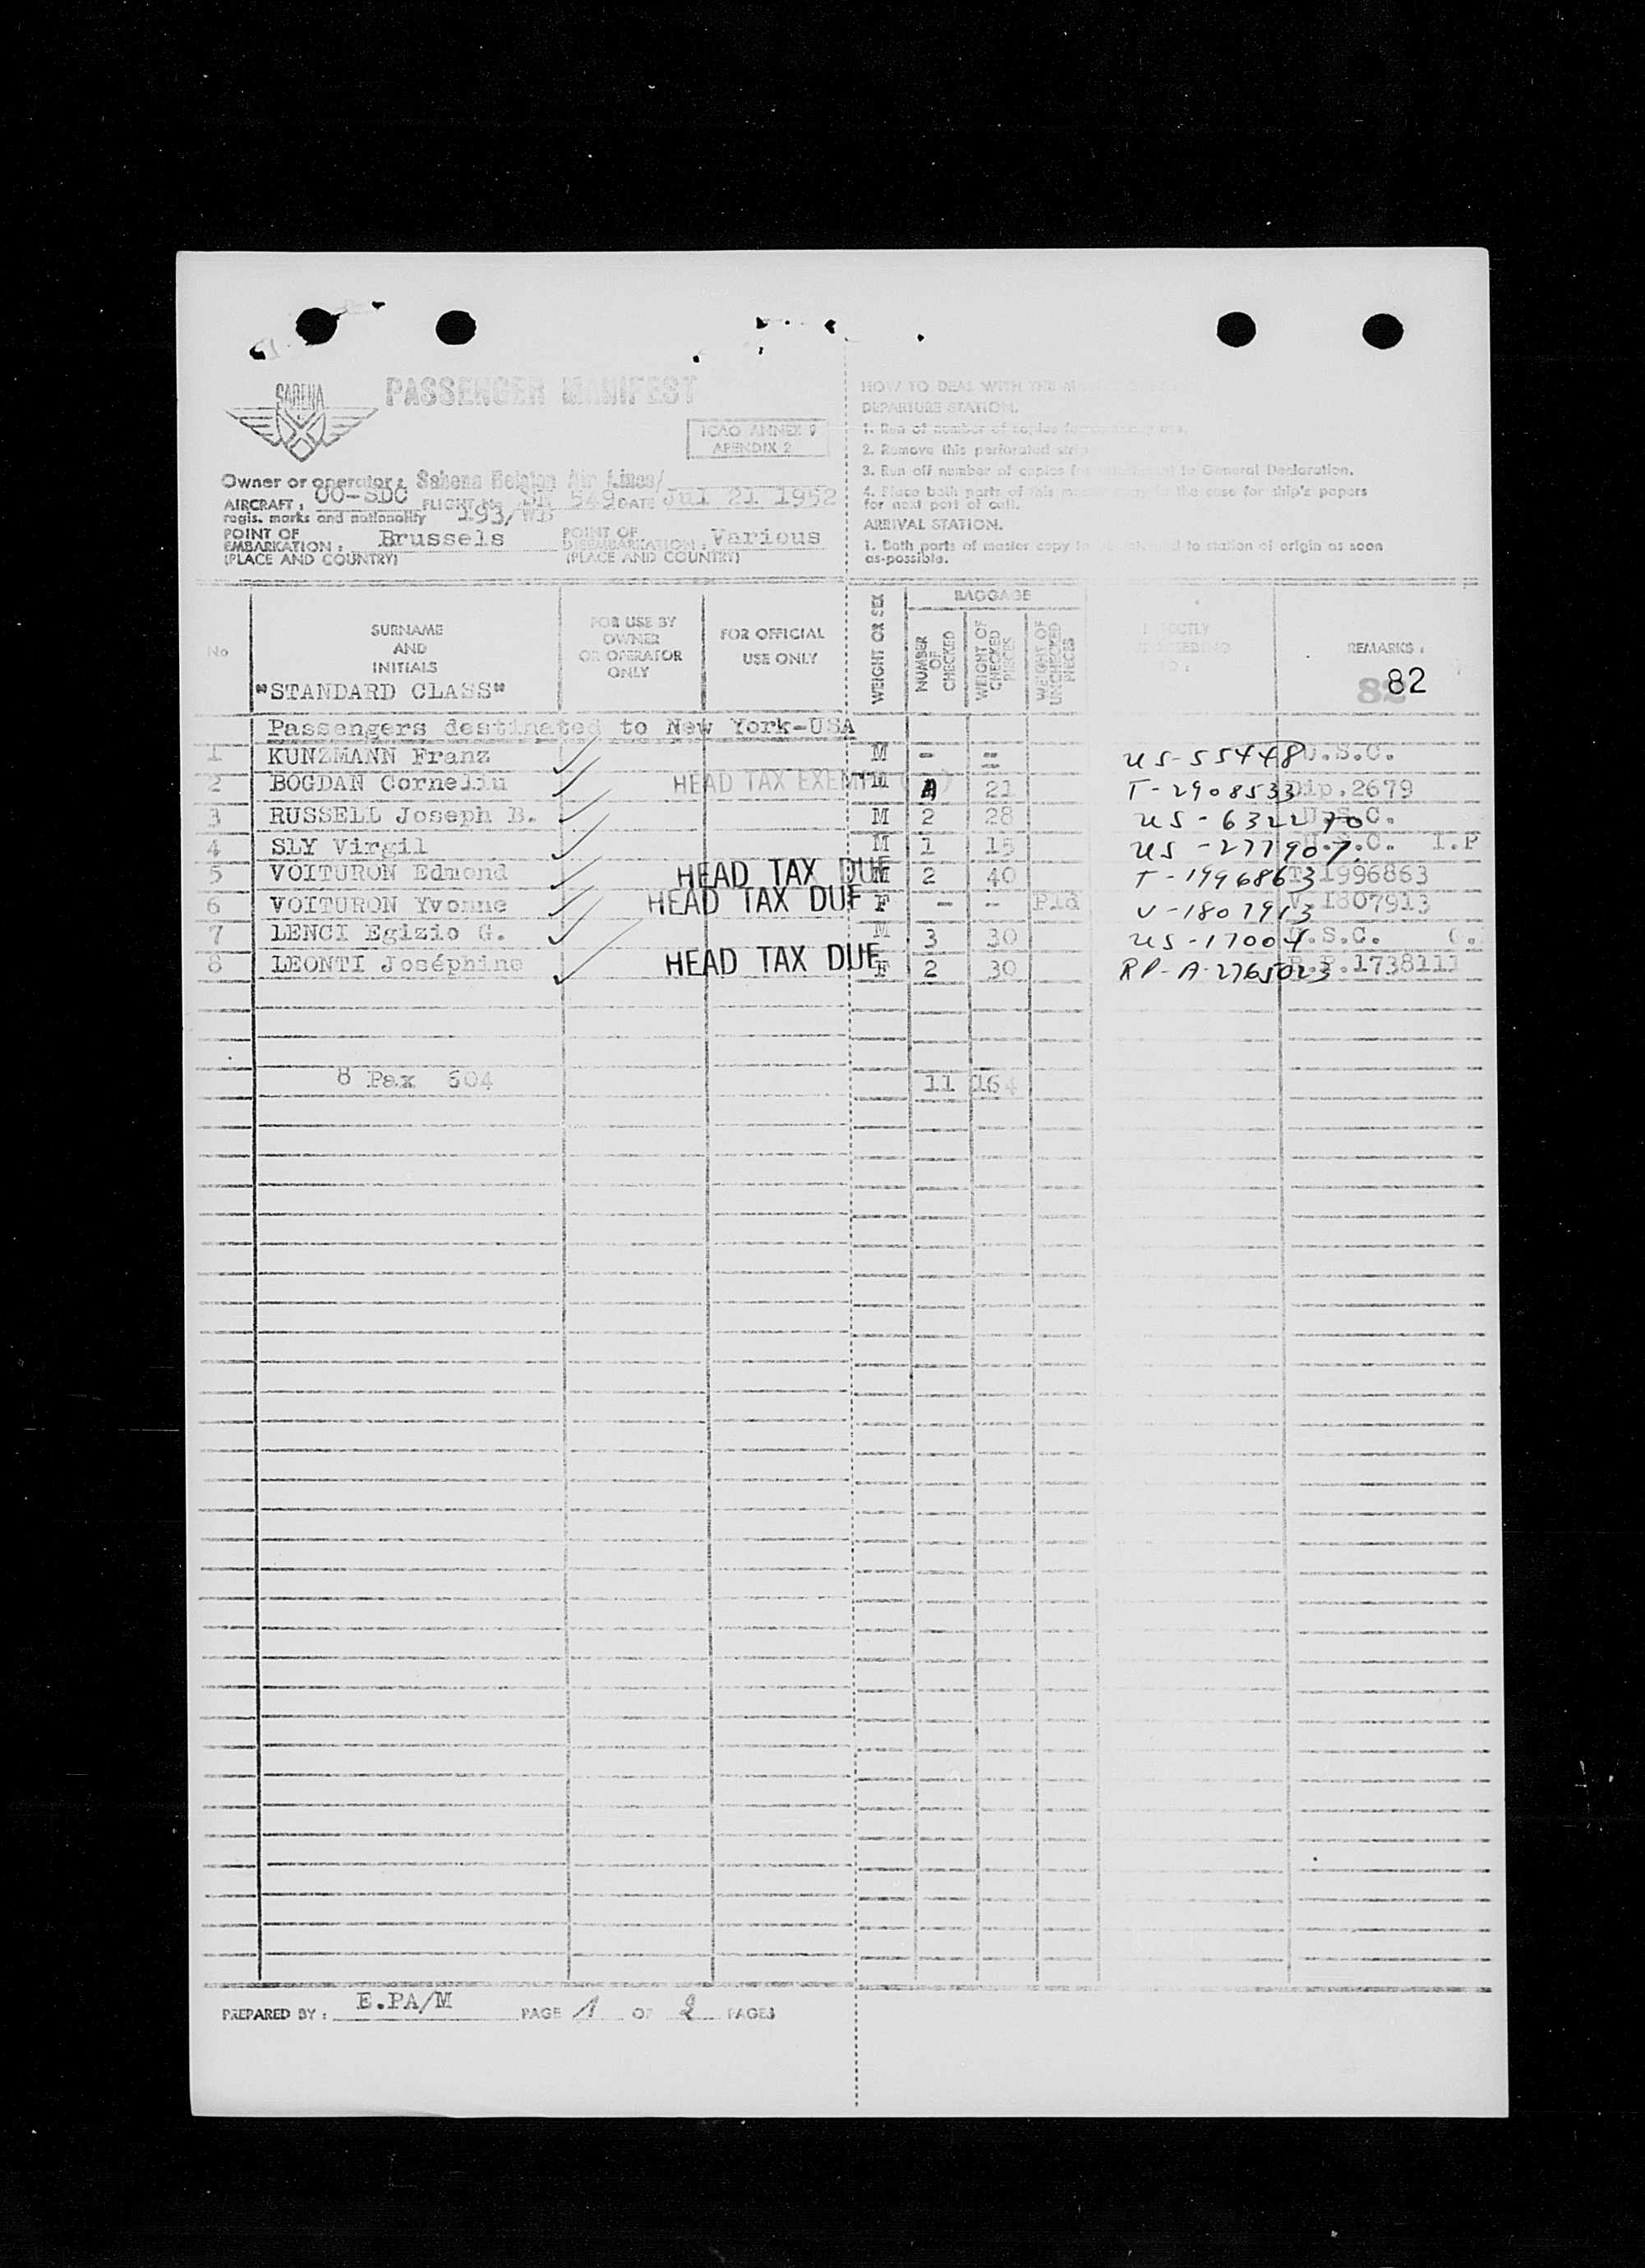 SABENA
PASSENGER MANIFEST
ICAO ANNEX 9
APENDIX 2
Owner or operator : Sabena Belgian Air Lines/
AIRCRAFT : OO-SDC FLIGHT No SN 549 DATE Jul 21 1952
regis. marks and nationality 193/WB
POINT OF EMBARKATION : Brussels POINT OF DISEMBARKATION : Various
(PLACE AND COUNTRY) (PLACE AND COUNTRY)
HOW TO DEAL WITH THE
DEPARTURE STATION.
1. Run of number of copies for
2. Remove this perforated strip
3. Run off number of copies for to General Declaration.
4. Place both parts of this master copy in the case for ship's papers
for next port of call.
ARRIVAL STATION.
1. Both parts of master copy to to station of origin as soon
as-possible.
No
SURNAME
AND
INITIALS
"STANDARD CLASS"
FOR USE BY
OWNER
OR OPERATOR
ONLY
FOR OFFICIAL
USE ONLY
WEIGHT OR SEX
BAGGAGE
NUMBER OF CHECKED
WEIGHT OF CHECKED PIECES
WEIGHT OF UNCHECKED PIECES
REMARKS :
82
82
Passengers destinated to New York-USA
1 KUNZMANN Franz M - - US-55448 U.S.C.
2 BOGDAN Corneliu HEAD TAX EXEMPT M 21 T-2908533 Dip.2679
3 RUSSELL Joseph B. M 2 28 US-632270 U.S.C.
4 SLY Virgil M 1 15 US-277907 U.S.C. I.P
5 VOITURON Edmond HEAD TAX DUE M 2 40 T-1996863 T.1996863
6 VOITURON Yvonne HEAD TAX DUE F - - Pld V-1807913 V.1807913
7 LENCI Egizio G. M 3 30 US-17004 U.S.C.
8 LEONTI Joséphine HEAD TAX DUE F 2 30 RP-A-2765023 R.P.1738111
8 Pax 604 11 164
PREPARED BY : E.PA/M PAGE 1 OF 2 PAGES